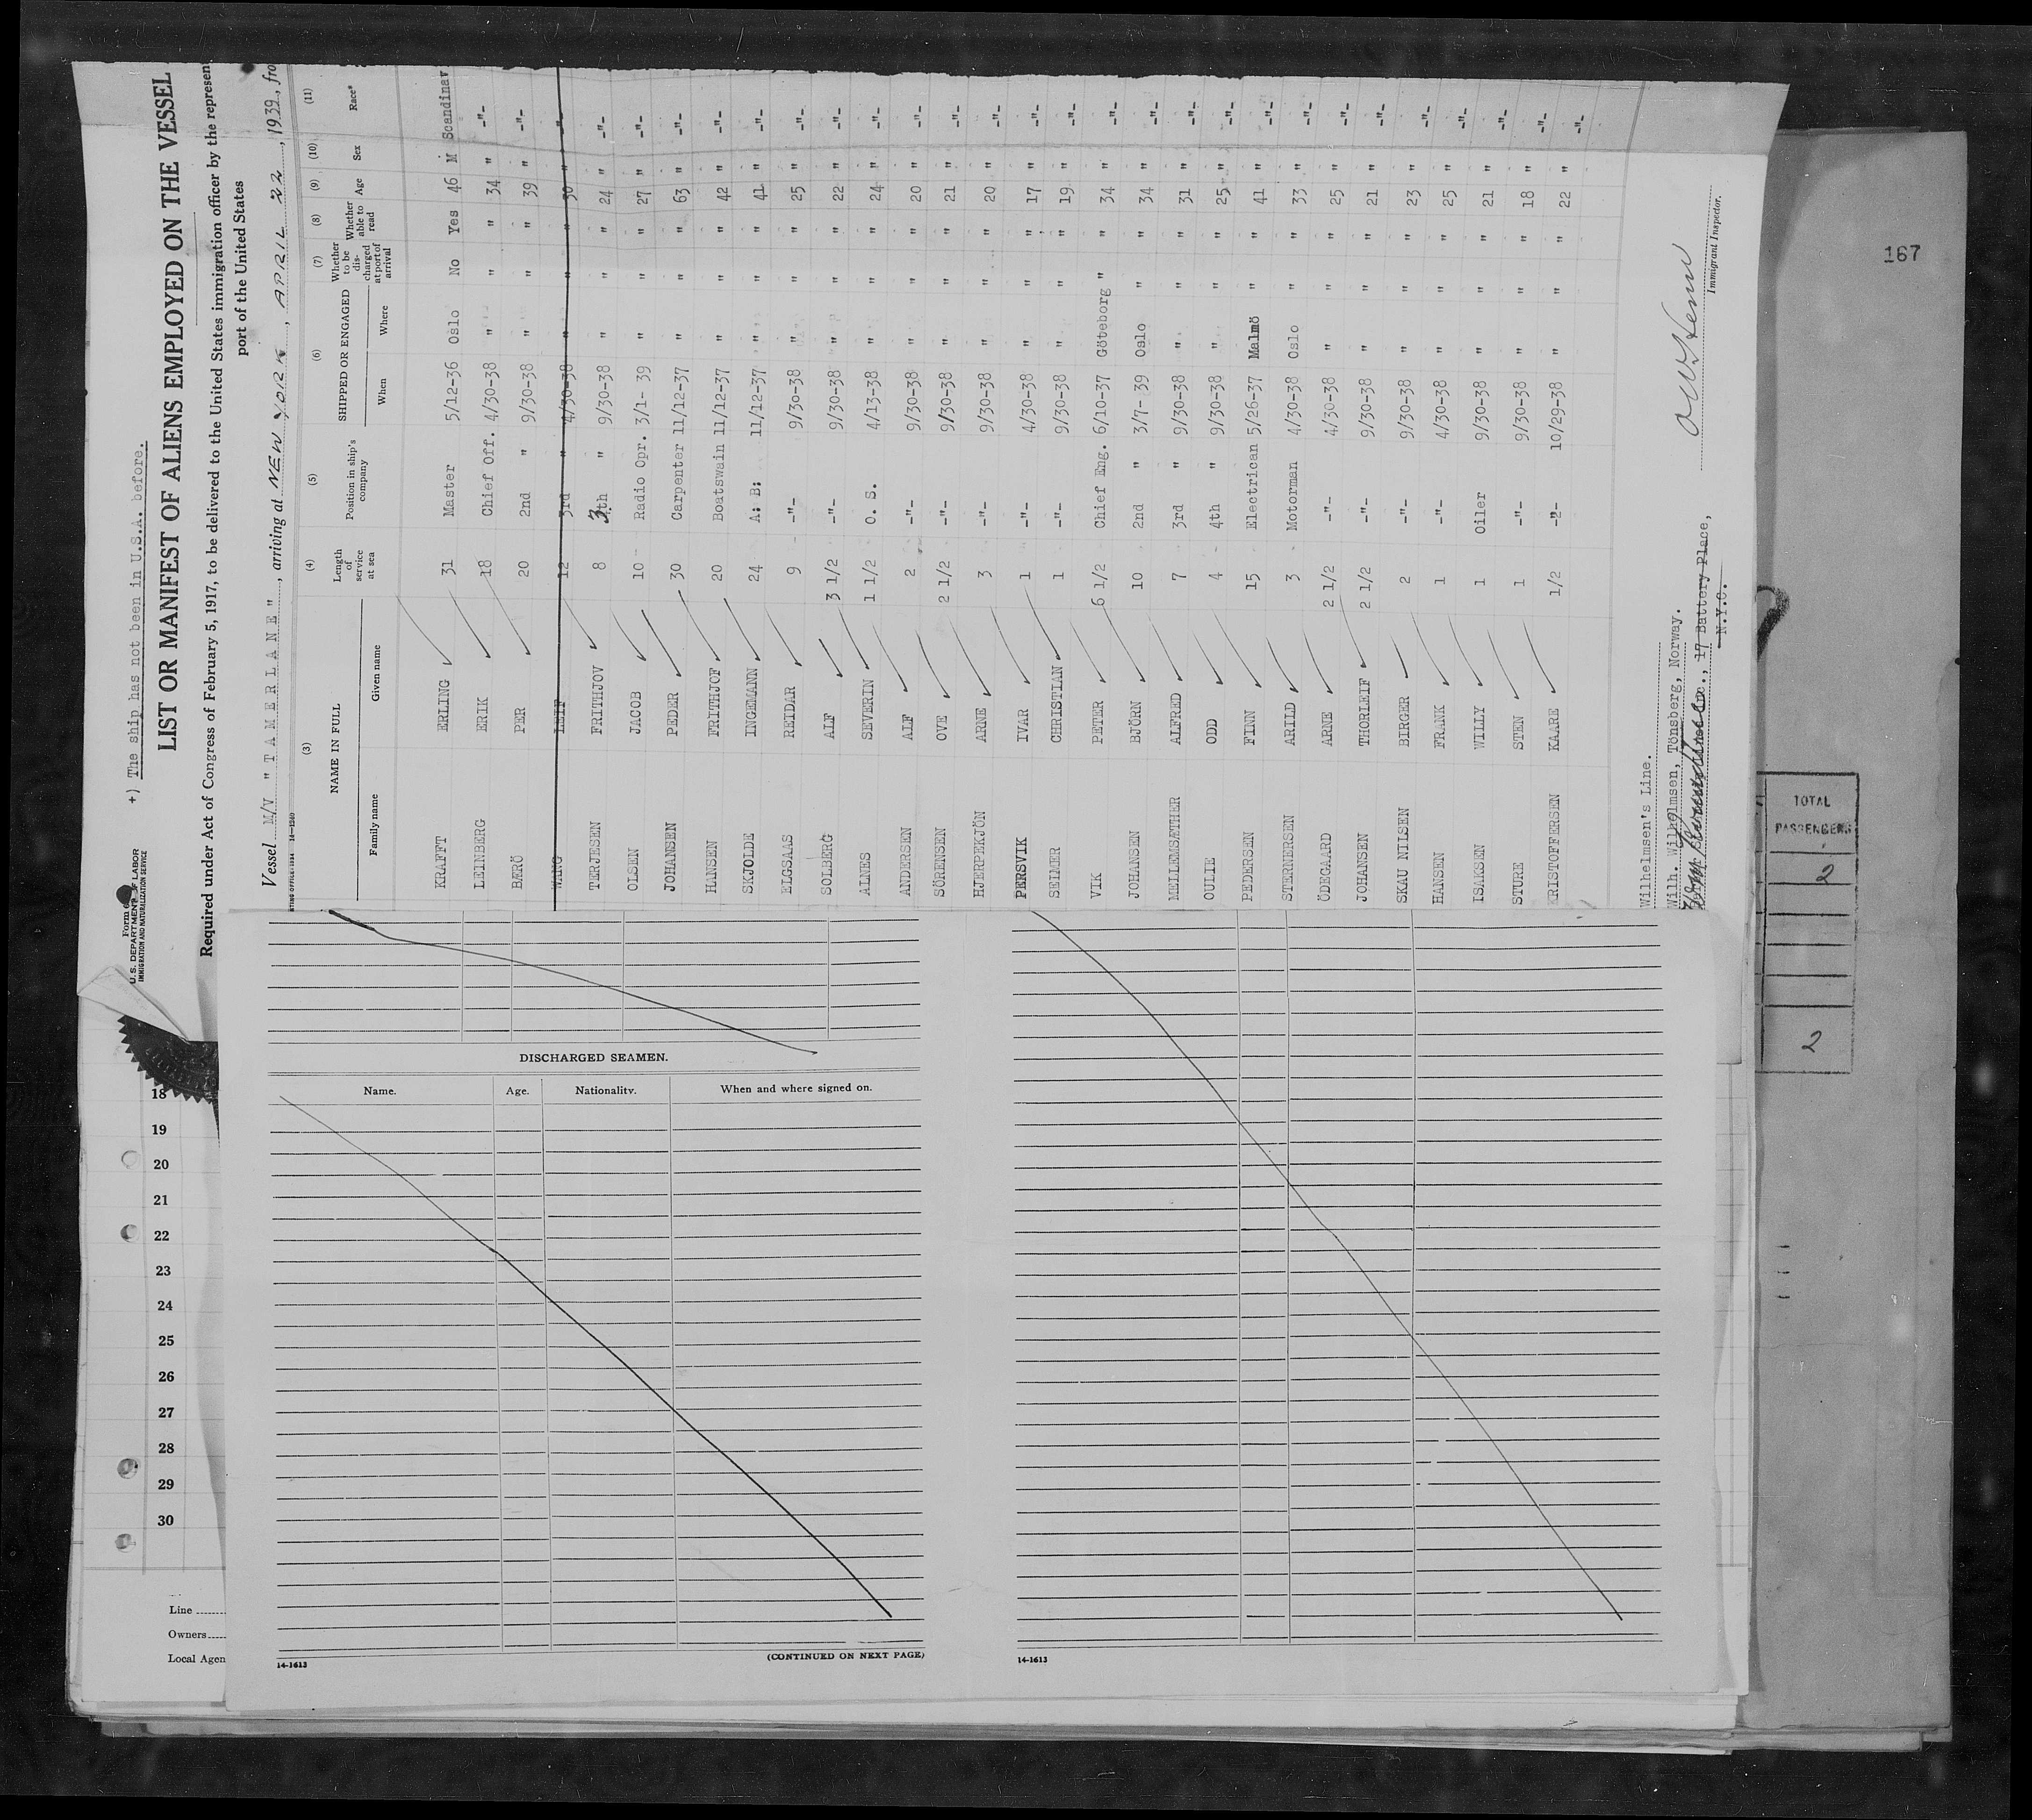 +) The ship has not been in U.S.A. before.
Form
U. S. DEPARTMENT OF LABOR
IMMIGRATION AND NATURALIZATION SERVICE
LIST OR MANIFEST OF ALIENS EMPLOYED ON THE VESSEL
Required under Act of Congress of February 5, 1917, to be delivered to the United States immigration officer by the represen
port of the United States
Vessel M/V "TAMERLANE", arriving at NEW YORK, APRIL 22, 1939, fro
(3) (4) (5) (6) (7) (8) (9) (10) (11)
NAME IN FULL Length of service at sea Position in ship's company SHIPPED OR ENGAGED Whether to be discharged at port of arrival Whether able to read Age Sex Race*
Family name Given name When Where
KRAFFT ERLING 31 Master 5/12-36 Oslo No Yes 46 M Scandinav
LEINBERG ERIK 18 Chief Off. 4/30-38 " " " 34 " -"-
BÆRÖ PER 20 2nd " 9/30-38 " " " 39 " -"-
WANG LEIF 12 3rd " 4/30-38 " " " 30 " -"-
TERJESEN FRITHJOV 8 3th " 9/30-38 " " " 24 " -"-
OLSEN JACOB 10 Radio Opr. 3/1- 39 " " " 27 " -"-
JOHANSEN PEDER 30 Carpenter 11/12-37 " " " 63 " -"-
HANSEN FRITHJOF 20 Boatswain 11/12-37 " " " 42 " -"-
SKJOLDE INGEMANN 24 A: B: 11/12-37 " " " 41 " -"-
ELGSAAS REIDAR 9 -"- 9/30-38 " " " 25 " -"-
SOLBERG ALF 3 1/2 -"- 9/30-38 " " " 22 " -"-
ALNES SEVERIN 1 1/2 O. S. 4/13-38 " " " 24 " -"-
ANDERSEN ALF 2 -"- 9/30-38 " " " 20 " -"-
SÖRENSEN OVE 2 1/2 -"- 9/30-38 " " " 21 " -"-
HJERPEKJÖN ARNE 3 -"- 9/30-38 " " " 20 " -"-
PERSVIK IVAR 1 -"- 4/30-38 " " " 17 " -"-
SEIMER CHRISTIAN 1 -"- 9/30-38 " " " 19 " -"-
VIK PETER 6 1/2 Chief Eng. 6/10-37 Göteborg " " 34 " -"-
JOHANSEN BJÖRN 10 2nd " 3/7- 39 Oslo " " 34 " -"-
MELLEMSÆTHER ALFRED 7 3rd " 9/30-38 " " " 31 " -"-
OULIE ODD 4 4th " 9/30-38 " " " 25 " -"-
PEDERSEN FINN 15 Electrican 5/26-37 Malmö " " 41 " -"-
STERNERSEN ARILD 3 Motorman 4/30-38 Oslo " " 33 " -"-
ÖDEGAARD ARNE 2 1/2 -"- 4/30-38 " " " 25 " -"-
JOHANSEN THORLEIF 2 1/2 -"- 9/30-38 " " " 21 " -"-
SKAU NILSEN BIRGER 2 -"- 9/30-38 " " " 23 " -"-
HANSEN FRANK 1 -"- 4/30-38 " " " 25 " -"-
ISAKSEN WILLY 1 Oiler 9/30-38 " " " 21 " -"-
STURE STEN 1 -"- 9/30-38 " " " 18 " -"-
KRISTOFFERSEN KAARE 1/2 -"- 10/29-38 " " " 22 " -"-
Wilhelmsen's Line.
Wilh. Wilhelmsen, Tönsberg, Norway.
Inc., 17 Battery Place,
N.Y.C.
Immigrant Inspector.
167
TOTAL
PASSENGERS
2
2
DISCHARGED SEAMEN.
Name. Age. Nationality. When and where signed on.
18
19
20
21
22
23
24
25
26
27
28
29
30
Line
Owners
Local Agen
14-1613
(CONTINUED ON NEXT PAGE)
14-1613